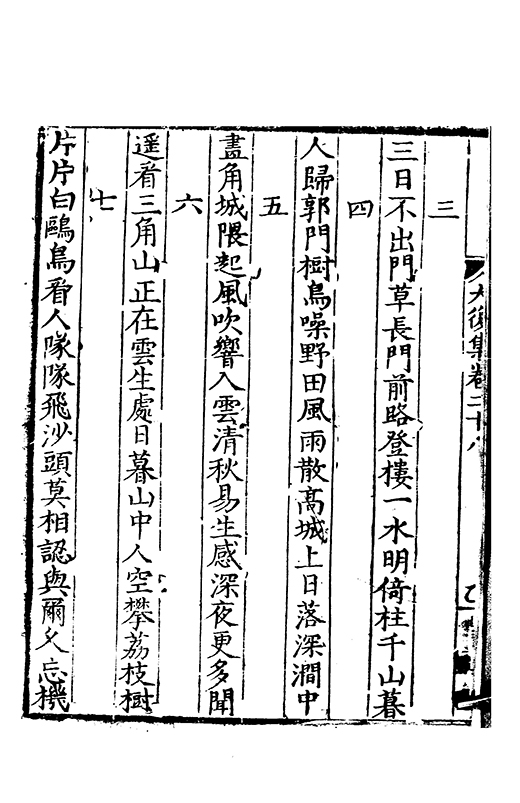 大復集卷二十八
三
三日不出門草長門前路登樓一水明倚柱千山暮
四
人歸郭門樹鳥噪野田風雨散高城上日落深澗中
五
畫角城隈起風吹響入雲清秋易生感深夜更多聞
六
遥看三角山正在雲生處日暮山中人空攀荔枝樹
七
片片白鷗鳥看人隊隊飛沙頭莫相認與爾久忘機